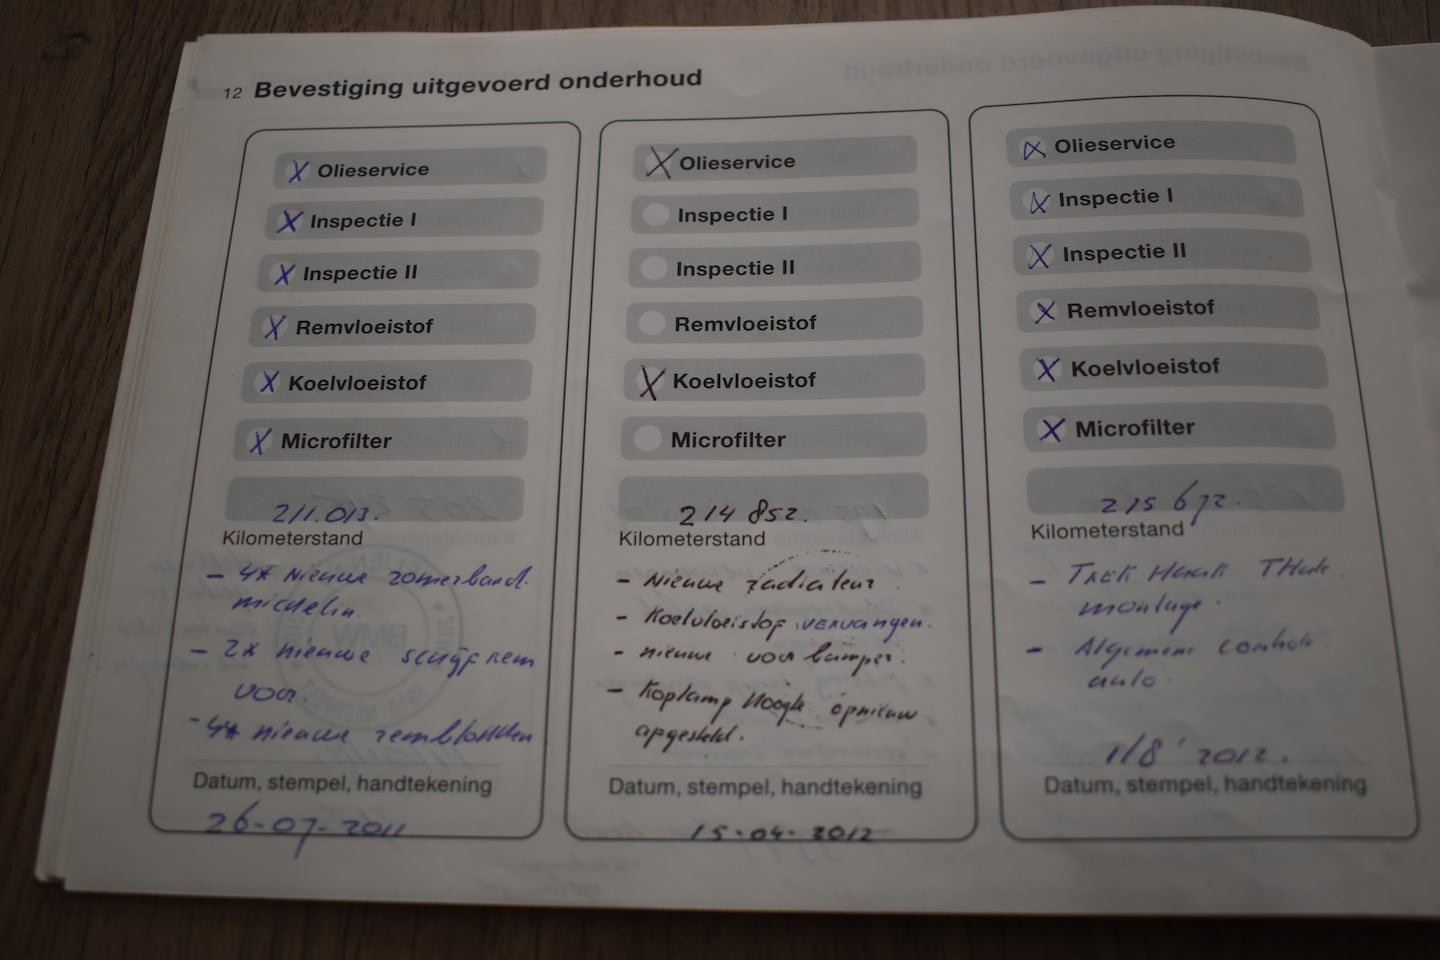 12 Bevestiging uitgevoerd onderhoud
X Olieservice
X Inspectie I
X Inspectie II
X Remvloeistof
X Koelvloeistof
X Microfilter
211.013.
Kilometerstand
- 4x Nieuwe zomerband.
michelin.
- 2x nieuwe schijfrem
voor.
- 4x nieuwe remblokken
Datum, stempel, handtekening
26-07-2011
X Olieservice
Inspectie I
Inspectie II
Remvloeistof
X Koelvloeistof
Microfilter
214 852.
Kilometerstand
- Nieuwe radiateur.
- Koelvloeistof vervangen.
- nieuwe voorbumper.
- Koplamp Hoogte opnieuw
apgesteld.
Datum, stempel, handtekening
15-04-2012
X Olieservice
X Inspectie I
X Inspectie II
X Remvloeistof
X Koelvloeistof
X Microfilter
215 672.
Kilometerstand
- Trek Haak THule
montage.
- Algemene controle
auto.
1/8 ' 2012.
Datum, stempel, handtekening